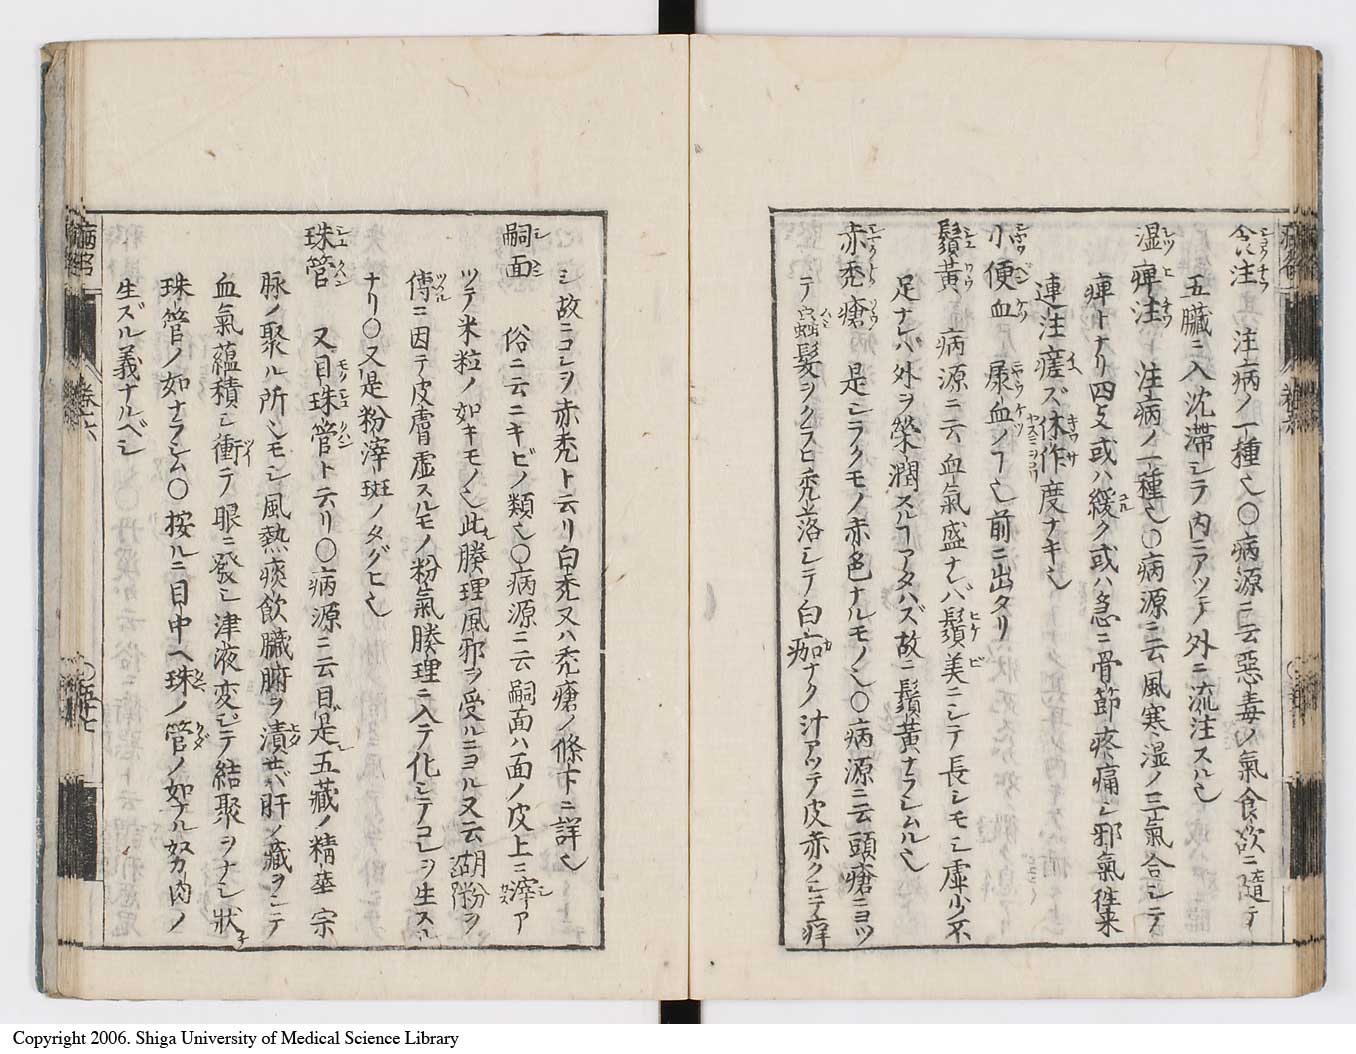 食注 注病ノ一種也〇病源ニ云惡毒ノ氣食欲ニ隨テ
五臓ニ入沈滞シテ内ニアツテ外ニ流注スル也
湿痺注 注病ノ一種也〇病源ニ云風寒湿ノ三氣合シテ
痺トナリ四支或ハ緩ク或ハ急ニ骨節疼痛シ邪氣往来
連注瘥ズ休作度ナキ也
小便血 尿血ノ𬼀也前ニ出タリ
鬚黄 病源ニ云血氣盛ナレバ鬚美ニシテ長シモシ虚少不
足ナレバ外ヲ榮潤スル𬼀アタハズ故ニ鬚黄ナラシムル也
赤禿瘡 是シラクモノ赤色ナルモノ也〇病源ニ云頭瘡ニヨツ
テ蟲髪ヲクラヒ禿落シテ白痂ナク汁アツテ皮赤クシテ痒
シ故ニコレヲ赤禿ト云リ白禿又ハ禿瘡ノ條下ニ詳也
嗣面 俗ニ云ニキビノ類也〇病源ニ云嗣面ハ面ノ皮上ニ滓ア
ツテ米粒ノ如キモノ也此腠理風邪ヲ受ルニヨル又云胡粉ヲ
傅ニ因テ皮膚虚スルモノ粉氣腠理ニ入テ化シテコレヲ生スル
ナリ〇又是粉滓斑ノタグヒ也
珠管 又目珠管ト云リ〇病源ニ云目是五藏ノ精華宗
脉ノ聚ル所シモシ風熱痰飲臓腑ヲ漬セバ肝ノ藏ヲシテ
血氣蘊積シ衝テ眼ニ發シ津液変シテ結聚ヲナシ状チ
珠管ノ如ナラシム〇按ルニ目中ヘ珠ノ管ノ如ナル努肉ノ
生ズル義ナルベシ
卷六
〇五十七
Copyright 2006. Shiga University of Medical Science Library